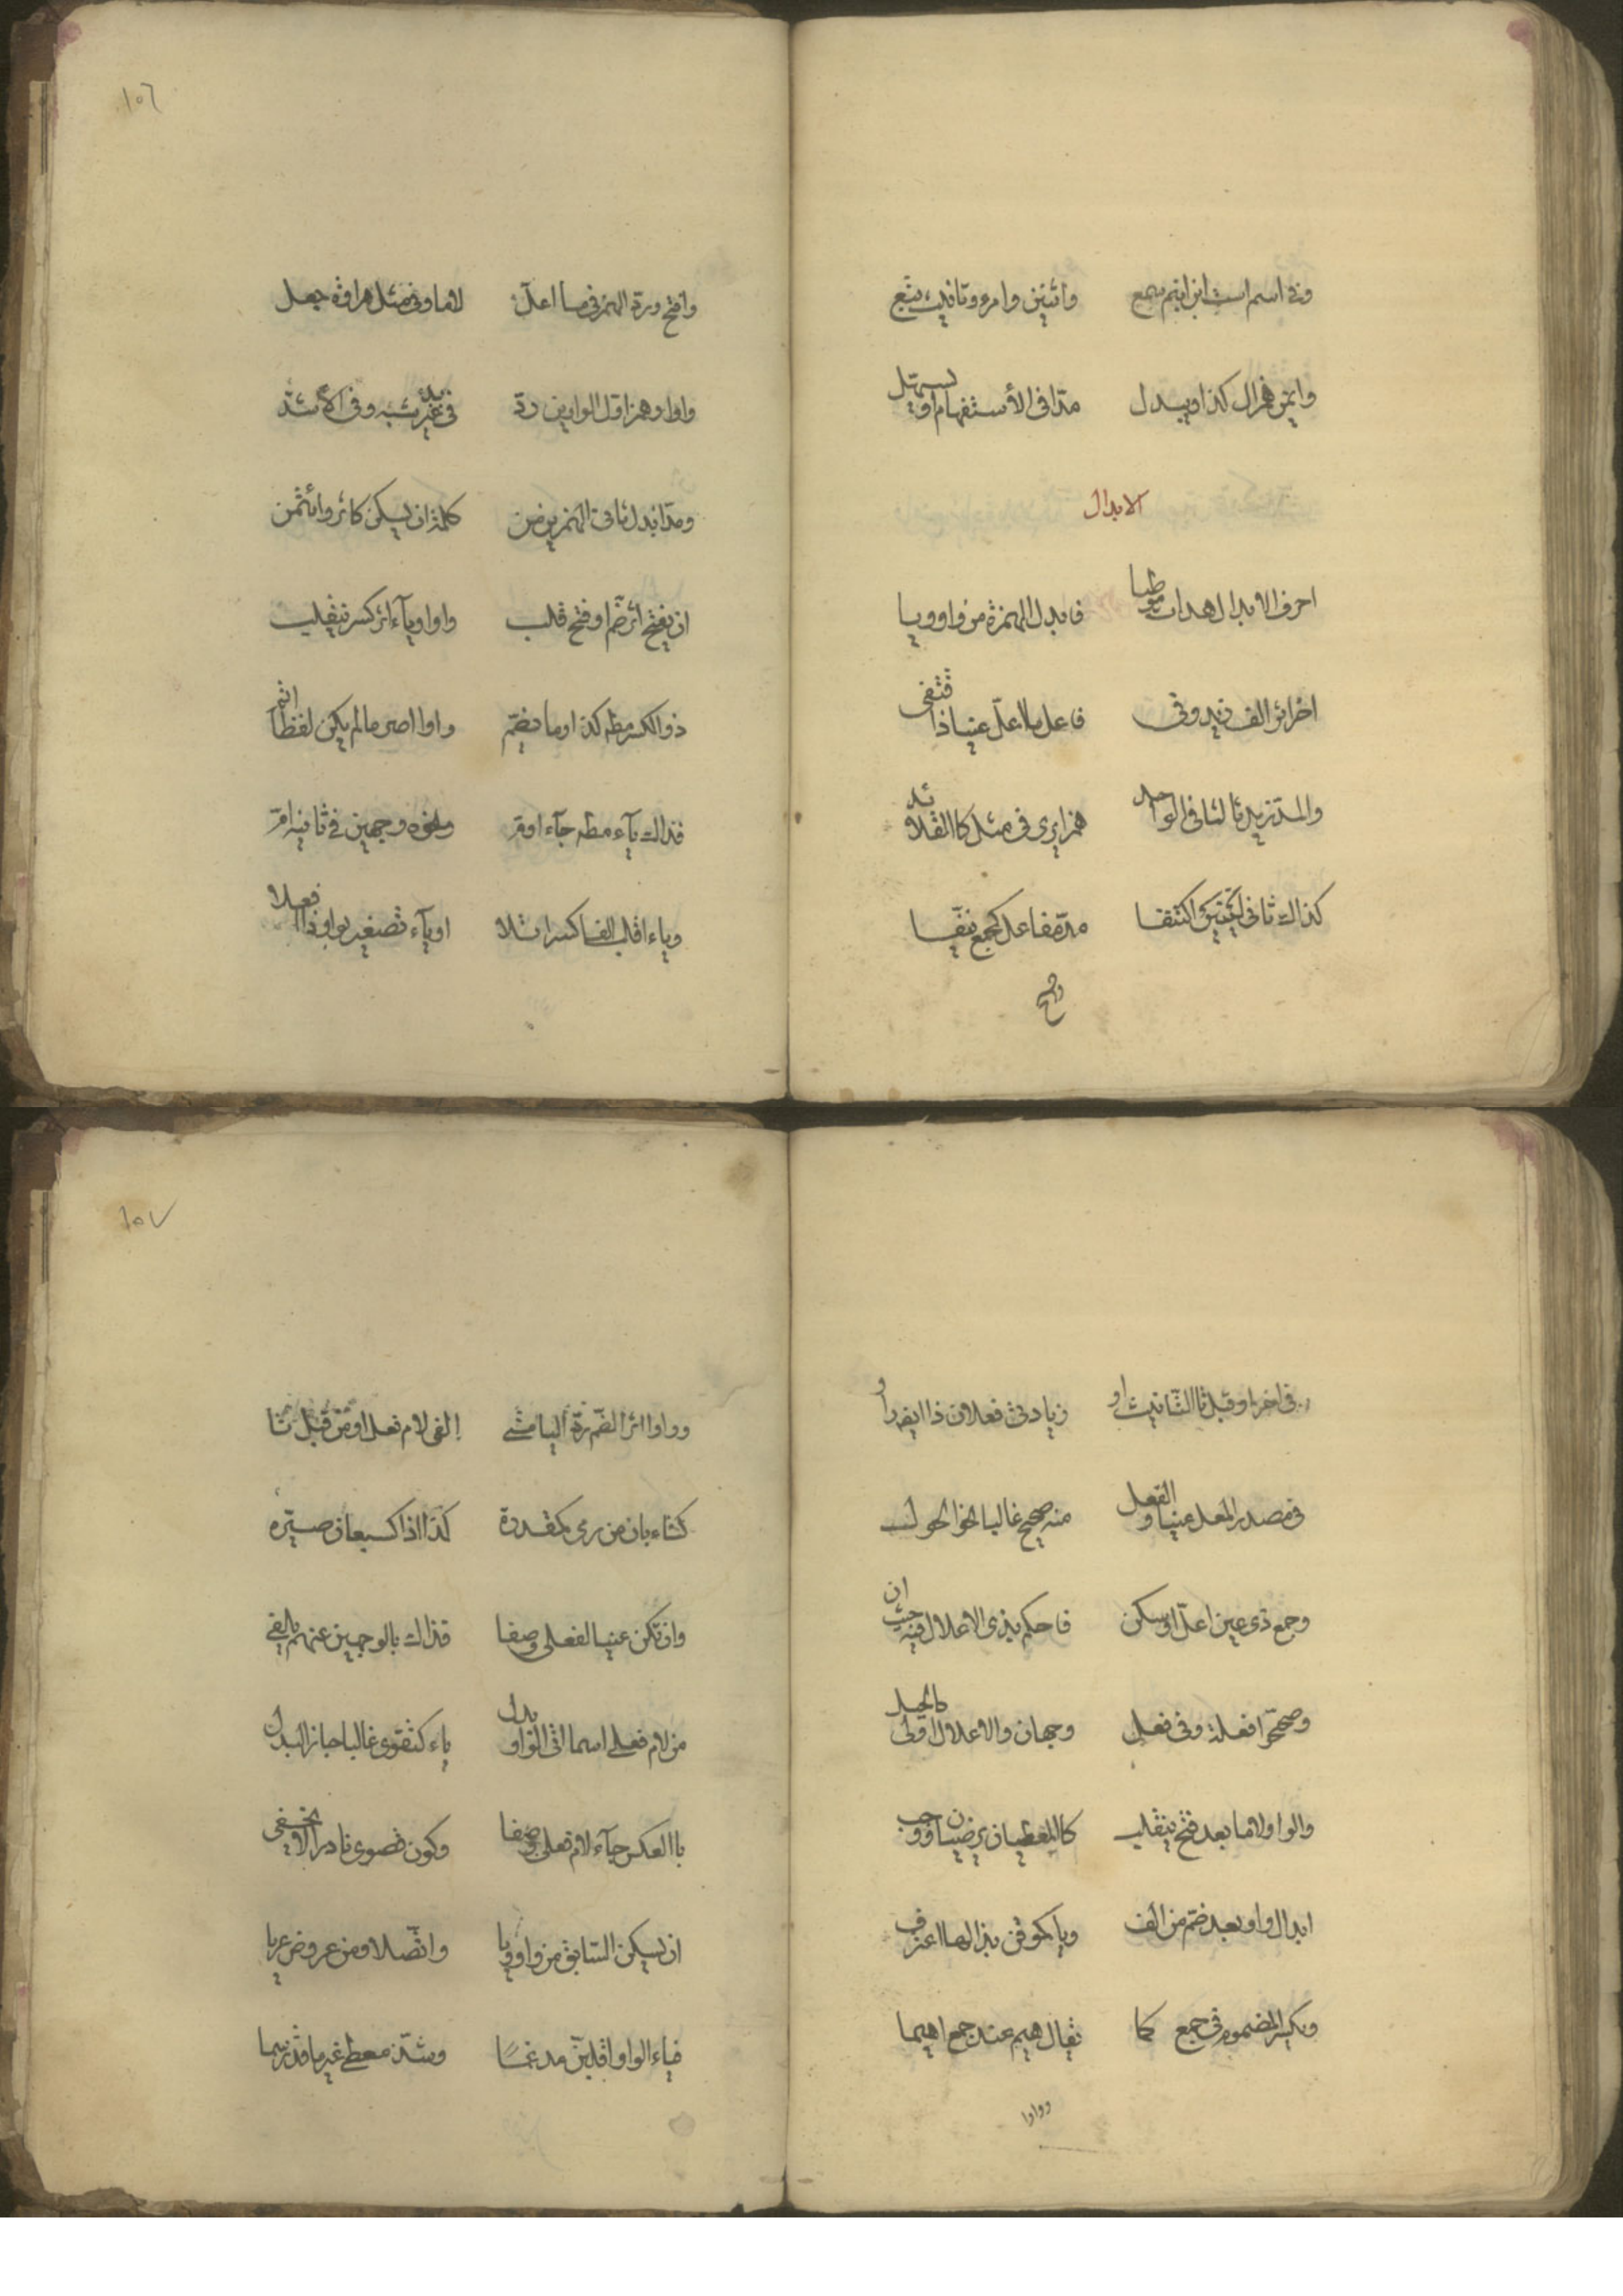 وفي اسم است ابن ابنم سمع واثنين وامرء وتانيث تبع
وايمن همز ال كذا ويبدل مدا في الأستفهام او يسهل
الابدال
احرف الابدال هدات موطيا فابدل الهمزة من واو ويا
اخر اثر الف زيد وفي فاعل ما اعلّ عينا ذا قتفى
والمد زيد ثالثا في الواحد همزا يرى في مثل كا القلائد
كذاك ثاني لينين اكتنفا مدّ مفاعل كجمع نيّفا
وافتح
١٥٦
وافتح وردّ الهمز يا فيما اعلّ لاما وفي مثل هراوة جعل
واوا وهمزا اول الواوين ردّ في بدء غير شبه ووفى الأشدّ
ومدّا ابدل ثاني الهمزين من كلمة ان يسكن كاثر وائتمن
ان يفتح اثر ضم او فتح قلب واوا وياء اثر كسر ينقلب
ذو الكسر مطه كذا وما يضم واوا اصر ما لم يكن لفظا اتم
فذاك ياء مطه جاء اوم ونحوه وجهين في ثانيه ام
وياء اقلب الفا كسرا تلا او ياء تصغير بواو ذا افعلا
في اخر او قبل تا التانيث او زيادتي فعلان ذا ايضا راوا
في مصدر المعل عينا والفعل منه صحيح غاليا نحو الحول
وجمع ذي عين اعلّ او سكن فاحكم بذي الاعلال فيه حيث ان
وصححّوا فعلة وفي فعل وجهان والاعلال اولى كالحيل
والواو لاما بعد فتح يا انقلب كالمعطيان يرضيان ووجب
ابدال واو بعد ضم من الف ويا كموقن بذا لها اعترف
ويكسر المضموم في جمع كما يقال هيم عند جمع اهيما
وواوا
١٥٧
وواوا اثر الضّم ردّ اليا متى الفى لام فعل او من قبل تا
كتاء بان من رمى كمقدرة كذا اذا كسبعان صيّره
وان تكن عينا لفعلى وصفا فذاك بالوجهين عنهم يلفى
من لام فعلى اسما اتى الواو بدل ياء كتقوى غالبا جا ذا البدل
با العكس جآء لام فعلى وصفا وكون قصوى نادرا لا يخفى
ان يسكن السّابق من واو ويا واتّصلا ومن عروض عريا
فياء الواو اقلبنّ مدغمًا وشذّ معطى غير ما قد رسما